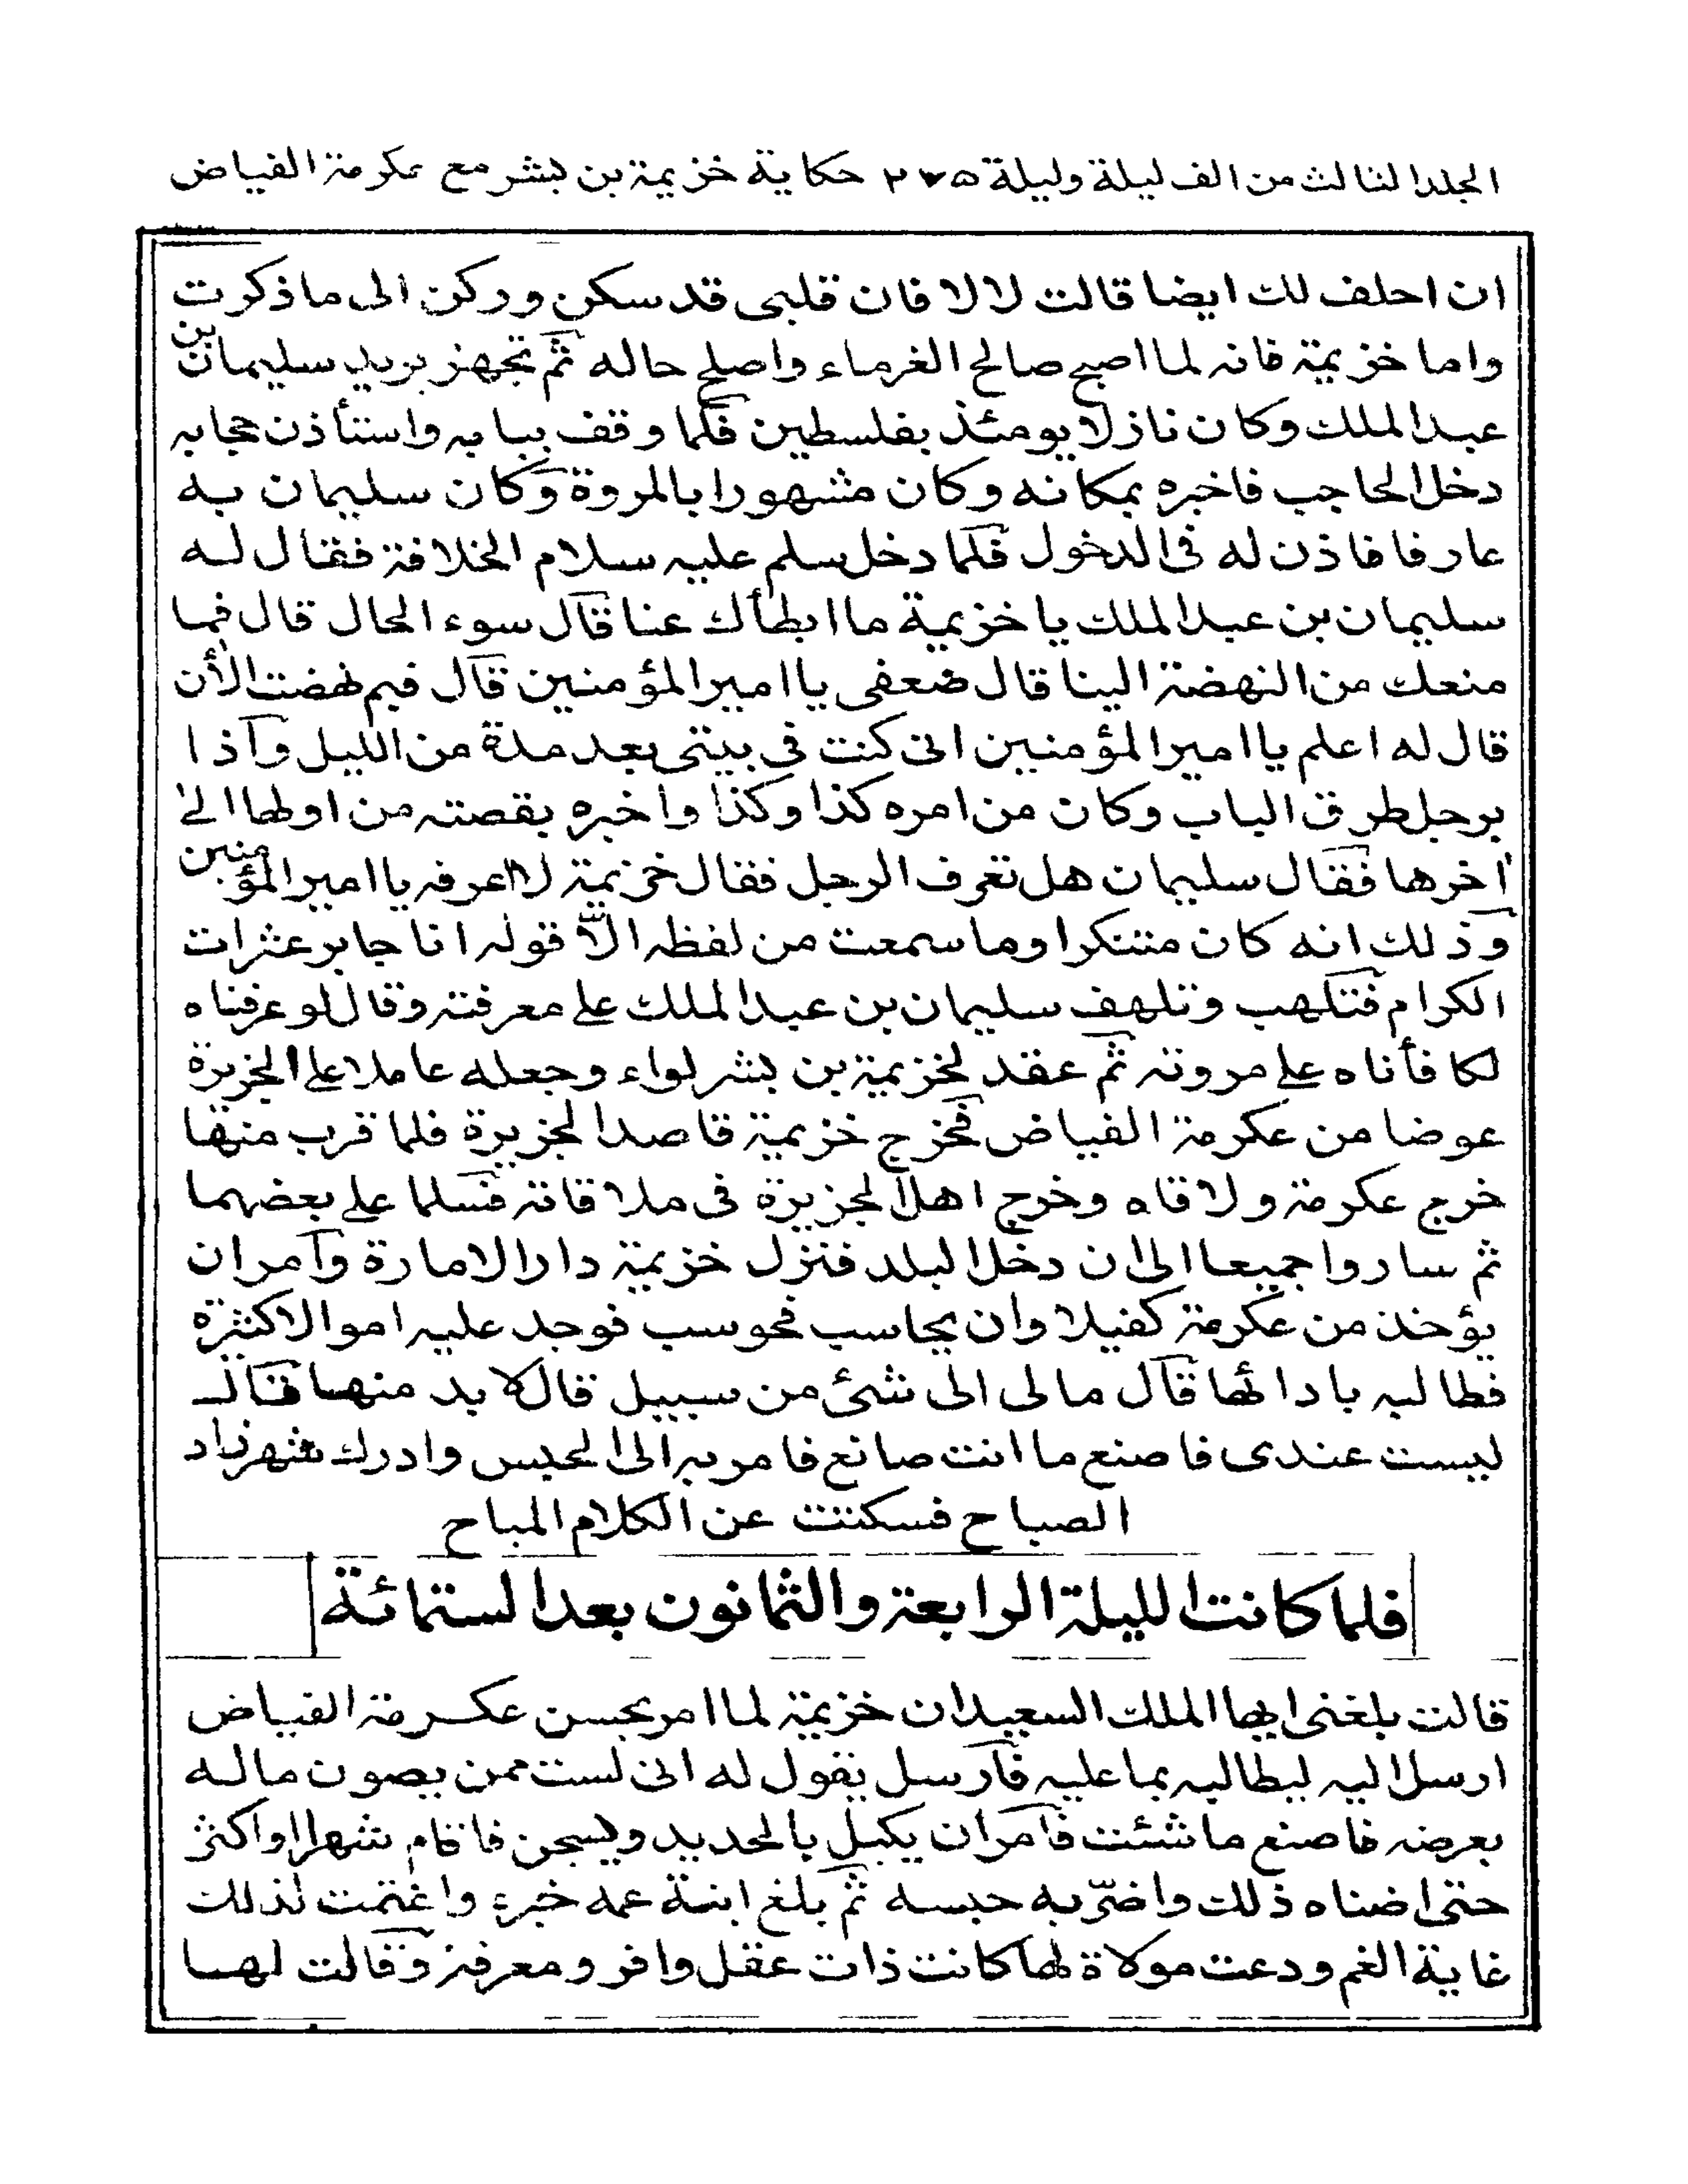 المجلد الثالث من الف ليلة وليلة ٣٧٥ حكاية خزيمة بن بشر مع عكرمة الفياض
ان احلف لك ايضا قالت لا لا فان قلبى قد سكن وركن الى ما ذكرت
واما خزيمة فانه لما اصبح صالح الغرماء واصلح حاله ثم تجهز يريد سليمان بن
عبد الملك وكان نازلا يومئذ بفلسطين فلما وقف ببابه واستأذن حجابه
دخل الحاجب فاخبره بمكانه وكان مشهورا بالمروة وكان سليمان به
عارفا فاذن له فى الدخول فلما دخل سلم عليه سلام الخلافة فقال له
سليمان بن عبد الملك يا خزيمة ما ابطأك عنا قال سوء الحال قال فما
منعك من النهضة الينا قال ضعفى يا امير المؤمنين قال فبم نهضت الأن
قال له اعلم يا امير المؤمنين انى كنت فى بيتى بعد مدة من الليل واذا
برجل طرق الباب وكان من امره كذا وكذا واخبره بقصته من اولها الى
اخرها فقال سليمان هل تعرف الرجل فقال خزيمة لا اعرفه يا امير المؤمنين
وذلك انه كان متنكرا وما سمعت من لفظه الّا قوله انا جابر عثرات
الكرام فتلهب وتلهف سليمان بن عبد الملك على معرفته وقال لو عرفناه
لكافأناه على مروته ثم عقد لخزيمة بن بشر لواء وجعله عاملا على الجزيرة
عوضا من عكرمة الفياض فخرج خزيمة قاصدا لجزيرة فلما قرب منها
خرج عكرمة ولاقاه وخرج اهل الجزيرة فى ملاقاته فسلما على بعضهما
ثم ساروا جميعا الى ان دخل البلد فنزل خزيمة دار الامارة وامر ان
يؤخذ من عكرمة كفيلا وان يحاسب فحوسب فوجد عليه اموالا كثيرة
فطالبه بادائها قال مالى الى شئ من سبيل قال لا بد منها قال
ليست عندى فاصنع ما انت صانع فامر به الى الحبس وادرك شهرزاد
الصباح فسكتت عن الكلام المباح
فلما كانت الليلة الرابعة والثمانون بعد الستمائة
قالت بلغنى ايها الملك السعيد ان خزيمة لما امر بحبس عكرمة الفياض
ارسل اليه ليطالبه بما عليه فارسل يقول له انى لست ممن يصون ماله
بعرضه فاصنع ما شئت فامر ان يكبل بالحديد ويسجن فاقام شهرا او اكثر
حتى اضناه ذلك واضرّ به حبسه ثم بلغ ابنة عمه خبره واغتمت لذلك
غاية الغم ودعت مولاة لها كانت ذات عقل وافر ومعرفة وقالت لها